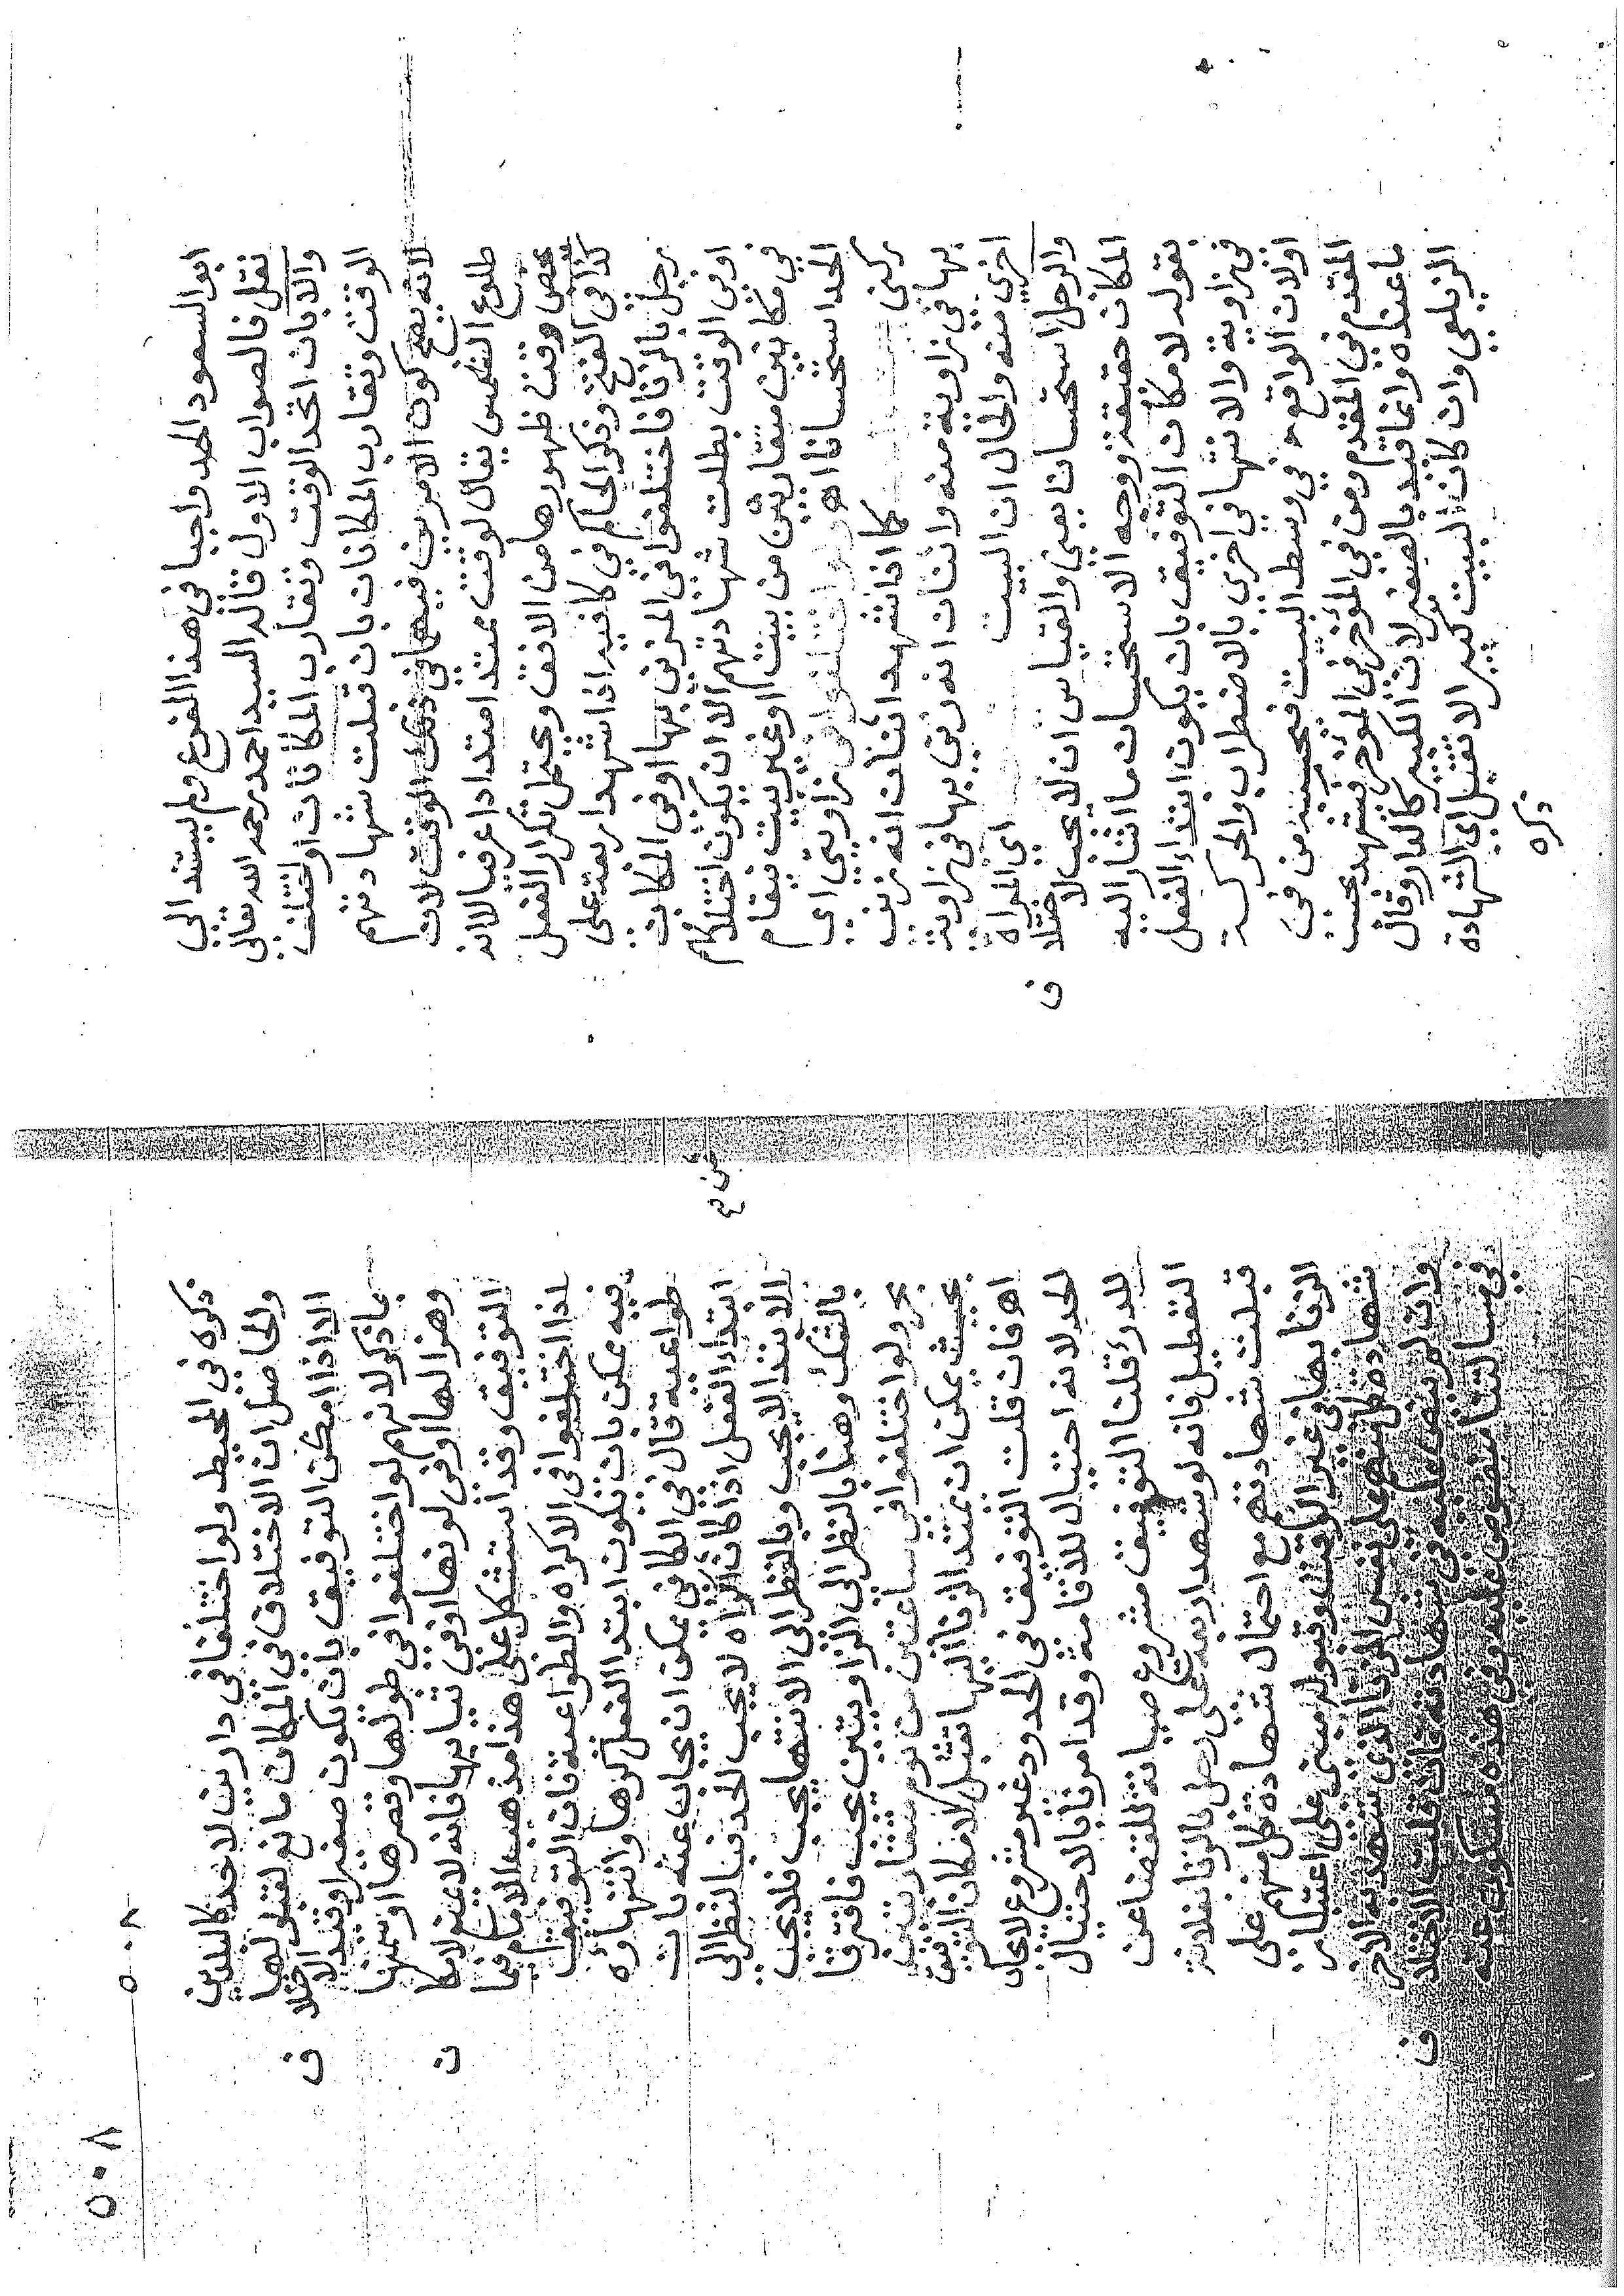 ابو السعود الحد واجبا في هذا الفرع ولم يستند الي
نقل فالصواب الاول قاله السيد احمد رحمه الله تعالى
والا بان اتحد الوقت وتقارب المكانان او اختلف
الوقت وتقارب المكانان بان قبلت شهادتهم
لانه يصح كون الامرين فيهما في ذلك الوقت لان
طلوع الشمس يقال لوقت ممتد امتدادا عرفيا لا انه
يخص وقت ظهورها من الافق ويحتمل تكرار الفعل
كذا في الفتح وذكر الحاكم في كافيه اذا شهد اربعة على
رجل بالزنا فاختلفوا في المزني بها او في المكان
او في الوقت بطلت شهادتهم الا ان يكون اختلافهم
في مكانين متقاربين من بيت او غير بيت فيقام
الحد استحسانا اهـ ولو اختلفوا في زاويتي اي
ركني كما اذا شهد اثنان انه زنى
بها في زاوية منه واثنان انه زنى بها في زاوية
اخرى منه والحال ان البيت اي المراة
والرجل استحسانا يعني والقياس ان لا يجب لاختلا ف
المكان حقيقة ووجه الاستحسان ما اشار اليه
بقوله لامكان التوفيق بان يكون ابتداء الفعل
في زاوية والانتها في اخرى بالاضطراب والحركة
اولان الواقع في وسط البيت فيحسبه من في
المقدم في المقدم ومن في المؤخر في المؤخر فيشهد بحسب
ما عنده وانما قيد بالصغير لان الكبير كالدار وقال
الزيلعي وان كان البيت كبير الا تقبل اي الشهادة
ذكره
٥٠٨
٥٠٨
ذكره في المحيط ولو اختلفا في دارين لاحد كالبلدين
والحاصل ان الاختلاف في المكان مانع لقبولها
الا اذا امكن التوفيق بان يكون صغيرا وقيد الاختلا ف
بما ذكر لانهم لو اختلفوا في طولها وقصرها او سمنها
وهزالها او في لونها او في ثيابها فانه لا يمنع لامكا ن
التوفيق وقد استشكل على هذا مذهب الامام فيما
اذا اختلفوا في الاكراه والطواعية فان التوفيق
فيه ممكن بان يكون ابتدا الفعل كرها وانتهاؤه
طواعية قال في الكافي يمكن ان يجاب عنه بان
ابتداء الفعل اذا كان اكراه لا يجب الحد فبالنظر الى
الابتدا لا يجب وبالنظر الى الانتها يجب فلا يجب
بالشك وهنا بالنظر الى الزاويتين يجب فافترقا
بحر ولو اختلفوا في ساعتين من يوم متقاربتين
بحيث يمكن ان يمتد الزنا اليها تقبل لامكان التوفيق
اهـ فان قلت التوفيق في الحدود غير مشروع لايجاب
الحد لانه احتيال للاقامة وقد امرنا بالاحتيال
للدرء قلنا التوفيق مشروع صيانة للقضا عن
التعطيل فانه لو شهد اربعة على رجل بالزنا بفلانة
قبلت شهادتهم مع احتمال شهادة كل منهم على
الزنا بها في غير الوقت وقبوله مبني على اعتبار
شهادة كل منهم على نفس الزنا الذي شهد به الاخر
وان لم ينص عليه في شهادته فان قلت الاختلا ف
في مسالتنا منصوص عليه وفي هذه مسكوت عنه